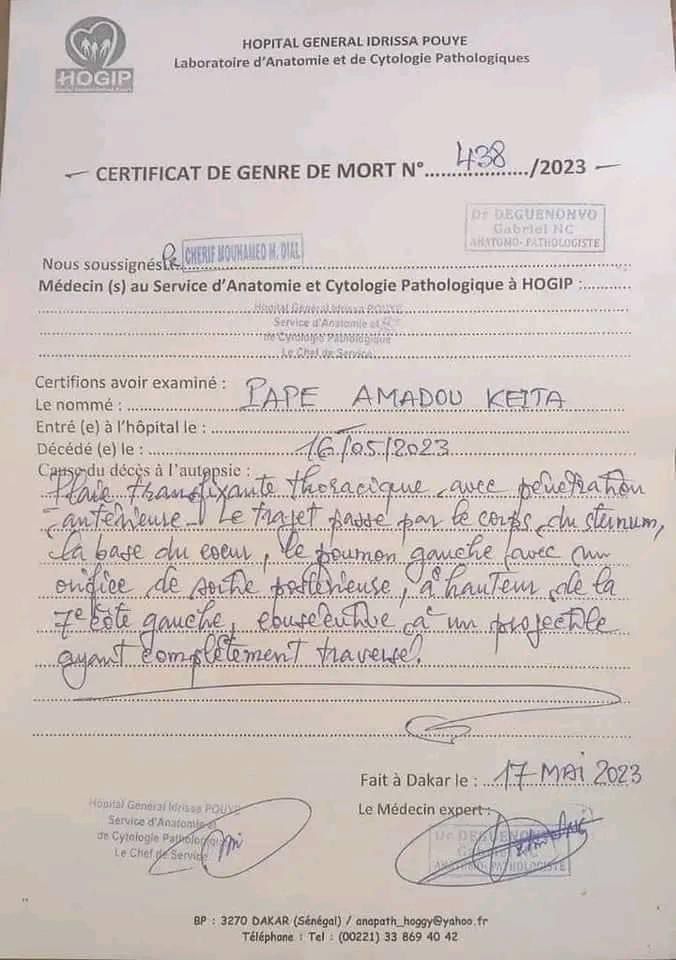 HOGIP
HOPITAL GENERAL IDRISSA POUYE
Laboratoire d'Anatomie et de Cytologie Pathologiques
CERTIFICAT DE GENRE DE MORT N° 438 /2023
Dr DEGUENONVO
Gabriel NC
ANATOMO-PATHOLOGISTE
Nous soussignés CHERIF MOUHAMED M. DIAL
Médecin (s) au Service d'Anatomie et Cytologie Pathologique à HOGIP :
Hôpital Général Idrissa POUYE
Service d'Anatomie et
de Cytologie Pathologique
Le Chef de Service
Certifions avoir examiné :
Le nommé : PAPE AMADOU KEITA
Entré (e) à l'hôpital le : —
Décédé (e) le : 16/05/2023
Cause du décès à l'autopsie :
Plaie transfixante thoracique avec pénétration
antérieuse. Le trajet passe par le corps du sternum,
la base du coeur, le poumon gauche avec un
orifice de sortie postérieuse, à hauteur de la
7e côte gauche, consécutive à un projectile
ayant complètement traversé.
Fait à Dakar le : 17 MAI 2023
Le Médecin expert :
Hôpital Général Idrissa POUYE
Service d'Anatomie et
de Cytologie Pathologique
Le Chef de Service
Dr DEGUENONVO
Gabriel NC
ANATOMO-PATHOLOGISTE
BP : 3270 DAKAR (Sénégal) / anapath_hoggy@yahoo.fr
Téléphone : Tel : (00221) 33 869 40 42